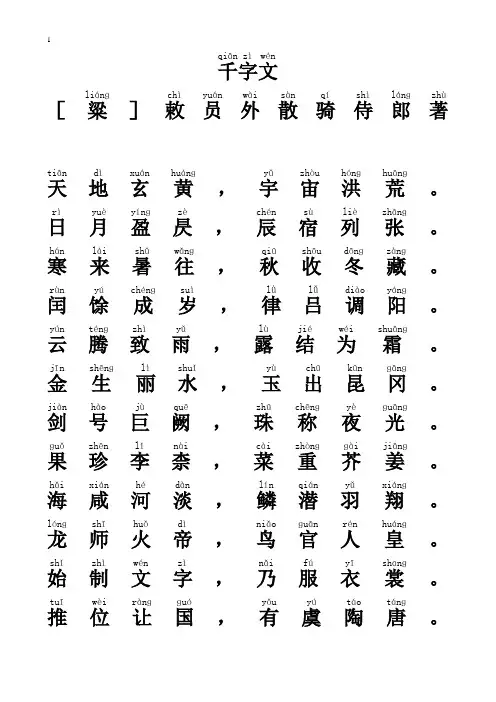 1
qiān zì wén
千字文
liáng chì yuán wài sàn qí shì láng zhù
[ 粱 ] 敕 员 外 散 骑 侍 郎 著
tiān dì xuán huáng yǔ zhòu hóng huāng
天 地 玄 黄 ， 宇 宙 洪 荒 。
rì yuè yíng zè chén sù liè zhāng
日 月 盈 昃 ， 辰 宿 列 张 。
hán lái shǔ wǎng qiū shōu dōng zàng
寒 来 暑 往 ， 秋 收 冬 藏 。
rùn yú chéng suì lǜ lǚ diào yáng
闰 馀 成 岁 ， 律 吕 调 阳 。
yún téng zhì yǔ lù jié wéi shuāng
云 腾 致 雨 ， 露 结 为 霜 。
jīn shēng lì shuǐ yù chū kūn gāng
金 生 丽 水 ， 玉 出 昆 冈 。
jiàn hào jù quē zhū chēng yè guāng
剑 号 巨 阙 ， 珠 称 夜 光 。
guǒ zhēn lǐ nài cài zhòng gài jiāng
果 珍 李 柰 ， 菜 重 芥 姜 。
hǎi xián hé dàn lín qián yǔ xiáng
海 咸 河 淡 ， 鳞 潜 羽 翔 。
lóng shī huǒ dì niǎo guān rén huáng
龙 师 火 帝 ， 鸟 官 人 皇 。
shǐ zhì wén zì nǎi fú yī shang
始 制 文 字 ， 乃 服 衣 裳 。
tuī wèi ràng guó yǒu yú táo táng
推 位 让 国 ， 有 虞 陶 唐 。